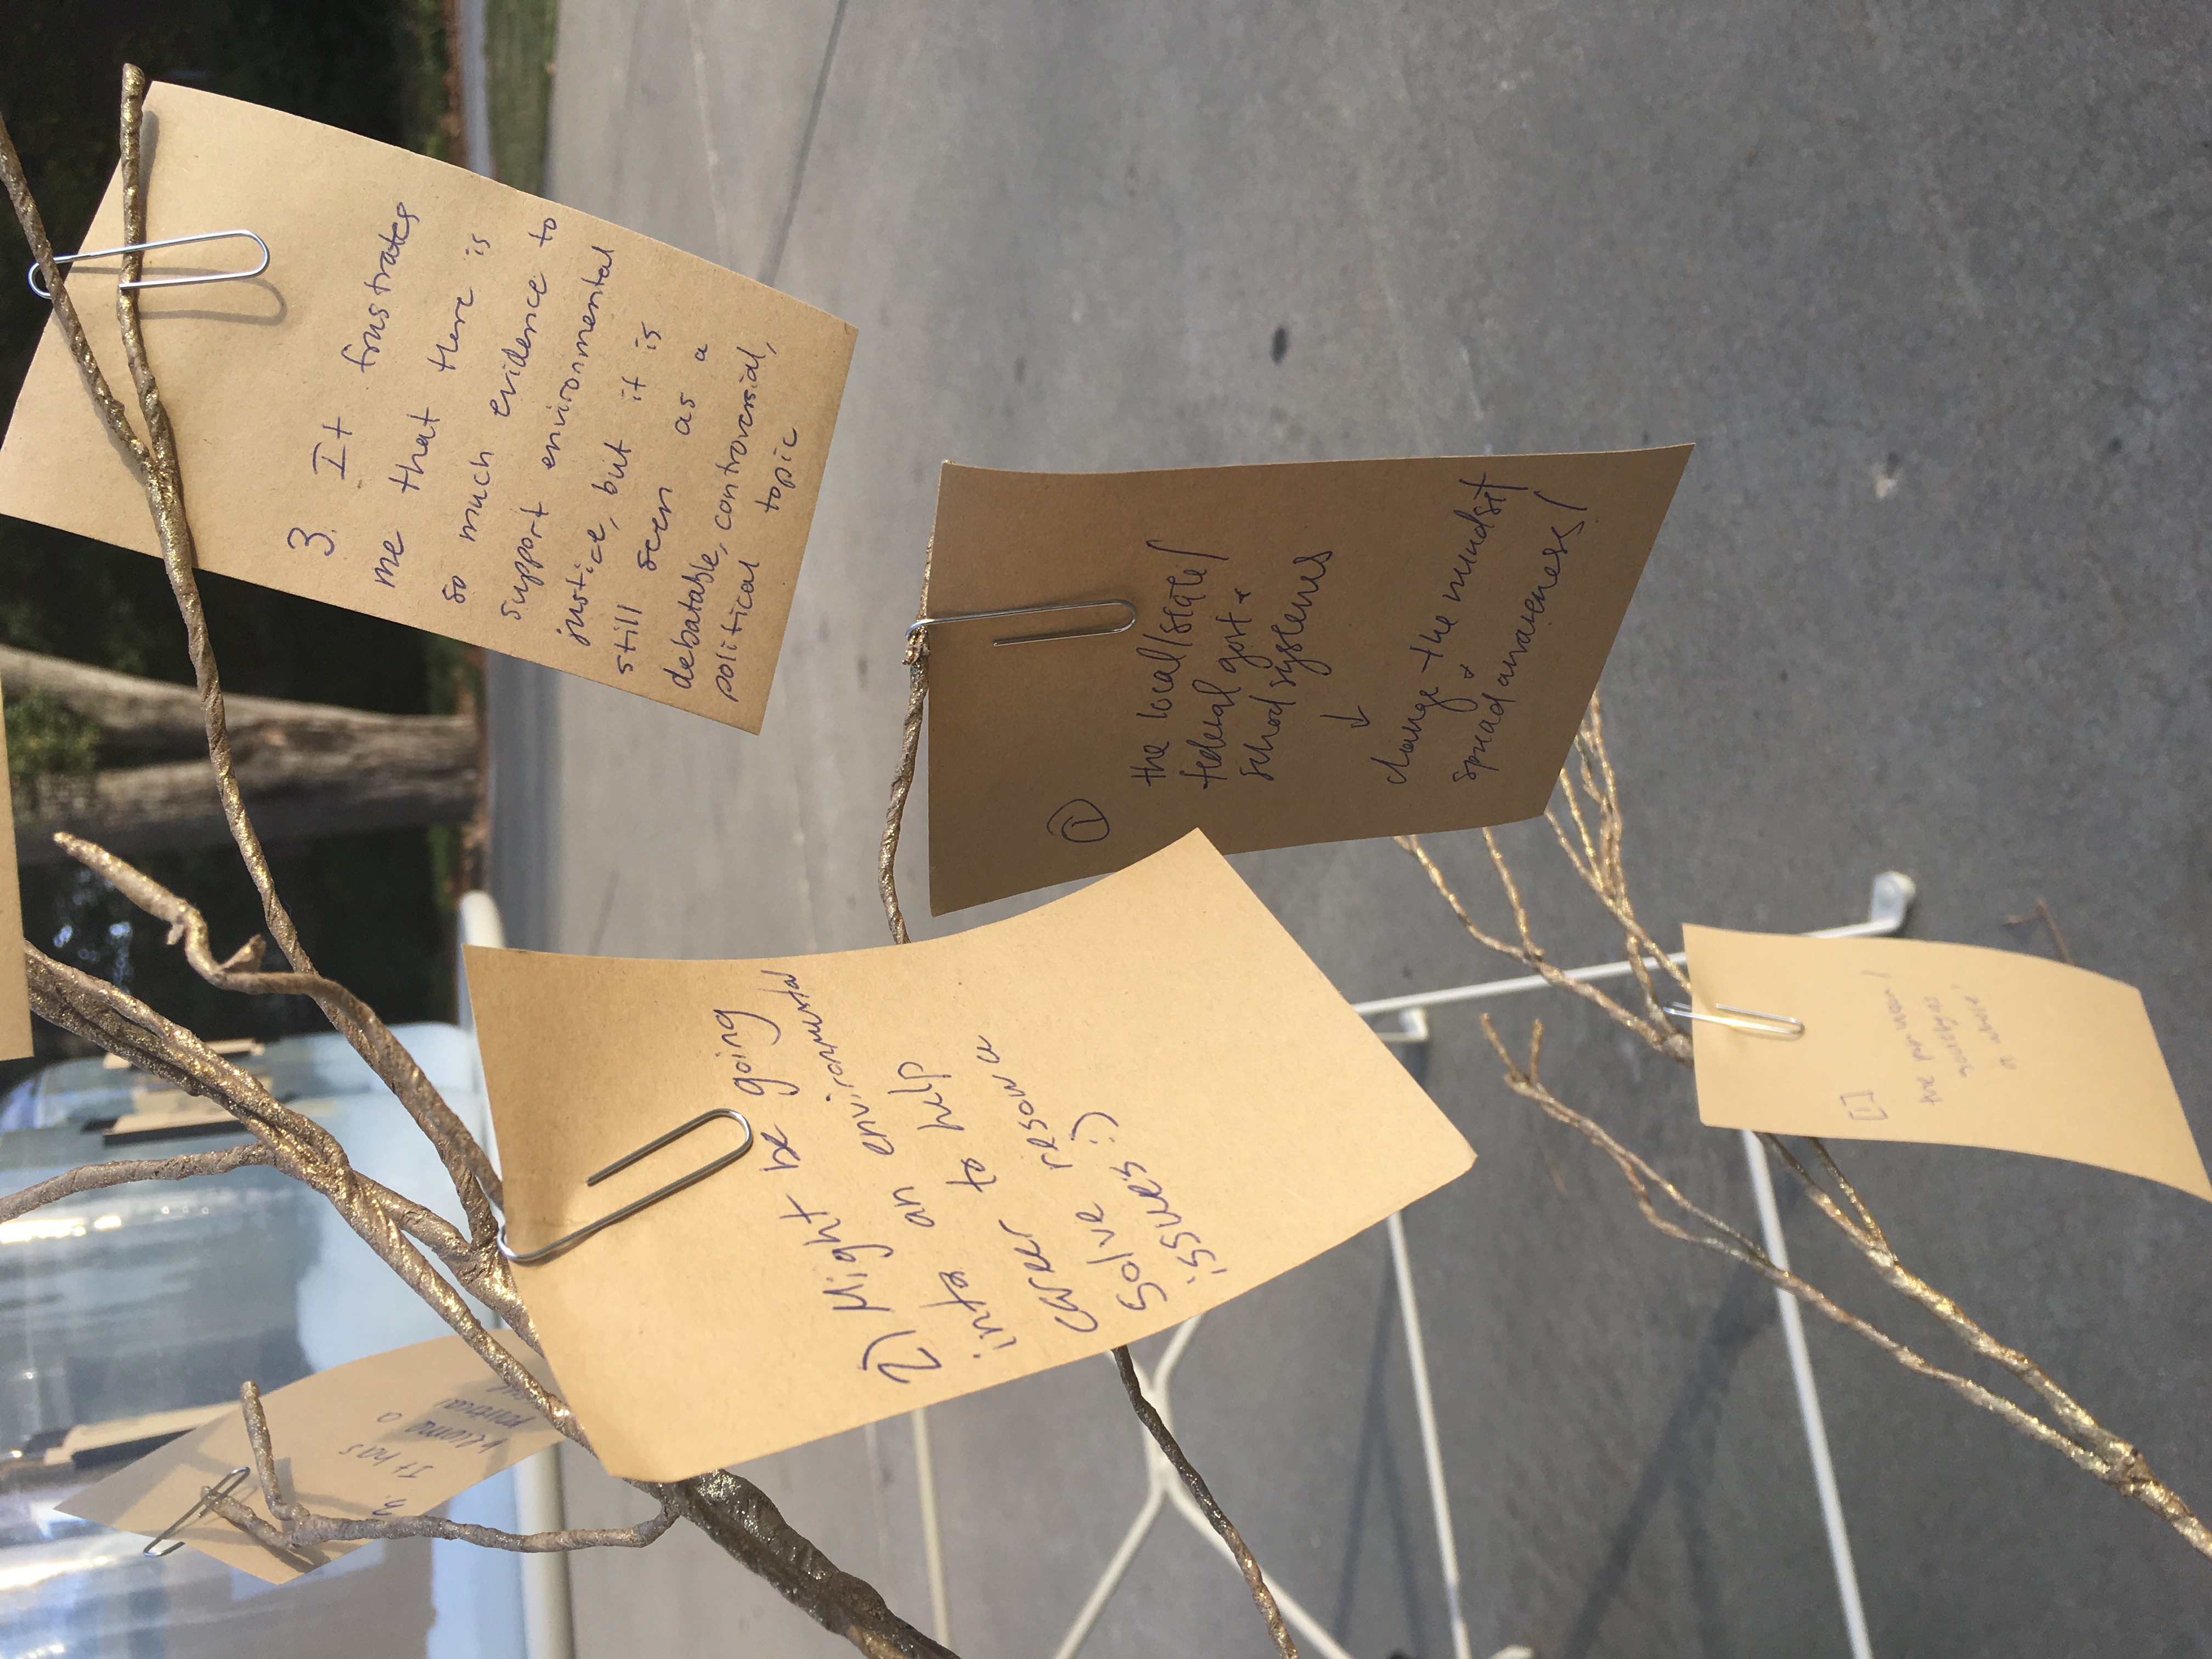 3.
It has
become a
political
3. It frustrates
me that there is
so much evidence to
support environmental
justice, but it is
still seen as a
debatable, controversial,
political topic
2) Might be going
into an environmental
career to help
Solve resource
issues :)
①
the local/state/
federal govt +
school systems
↓
change the mindset
+
spread awareness!
[1]
the
a whole!